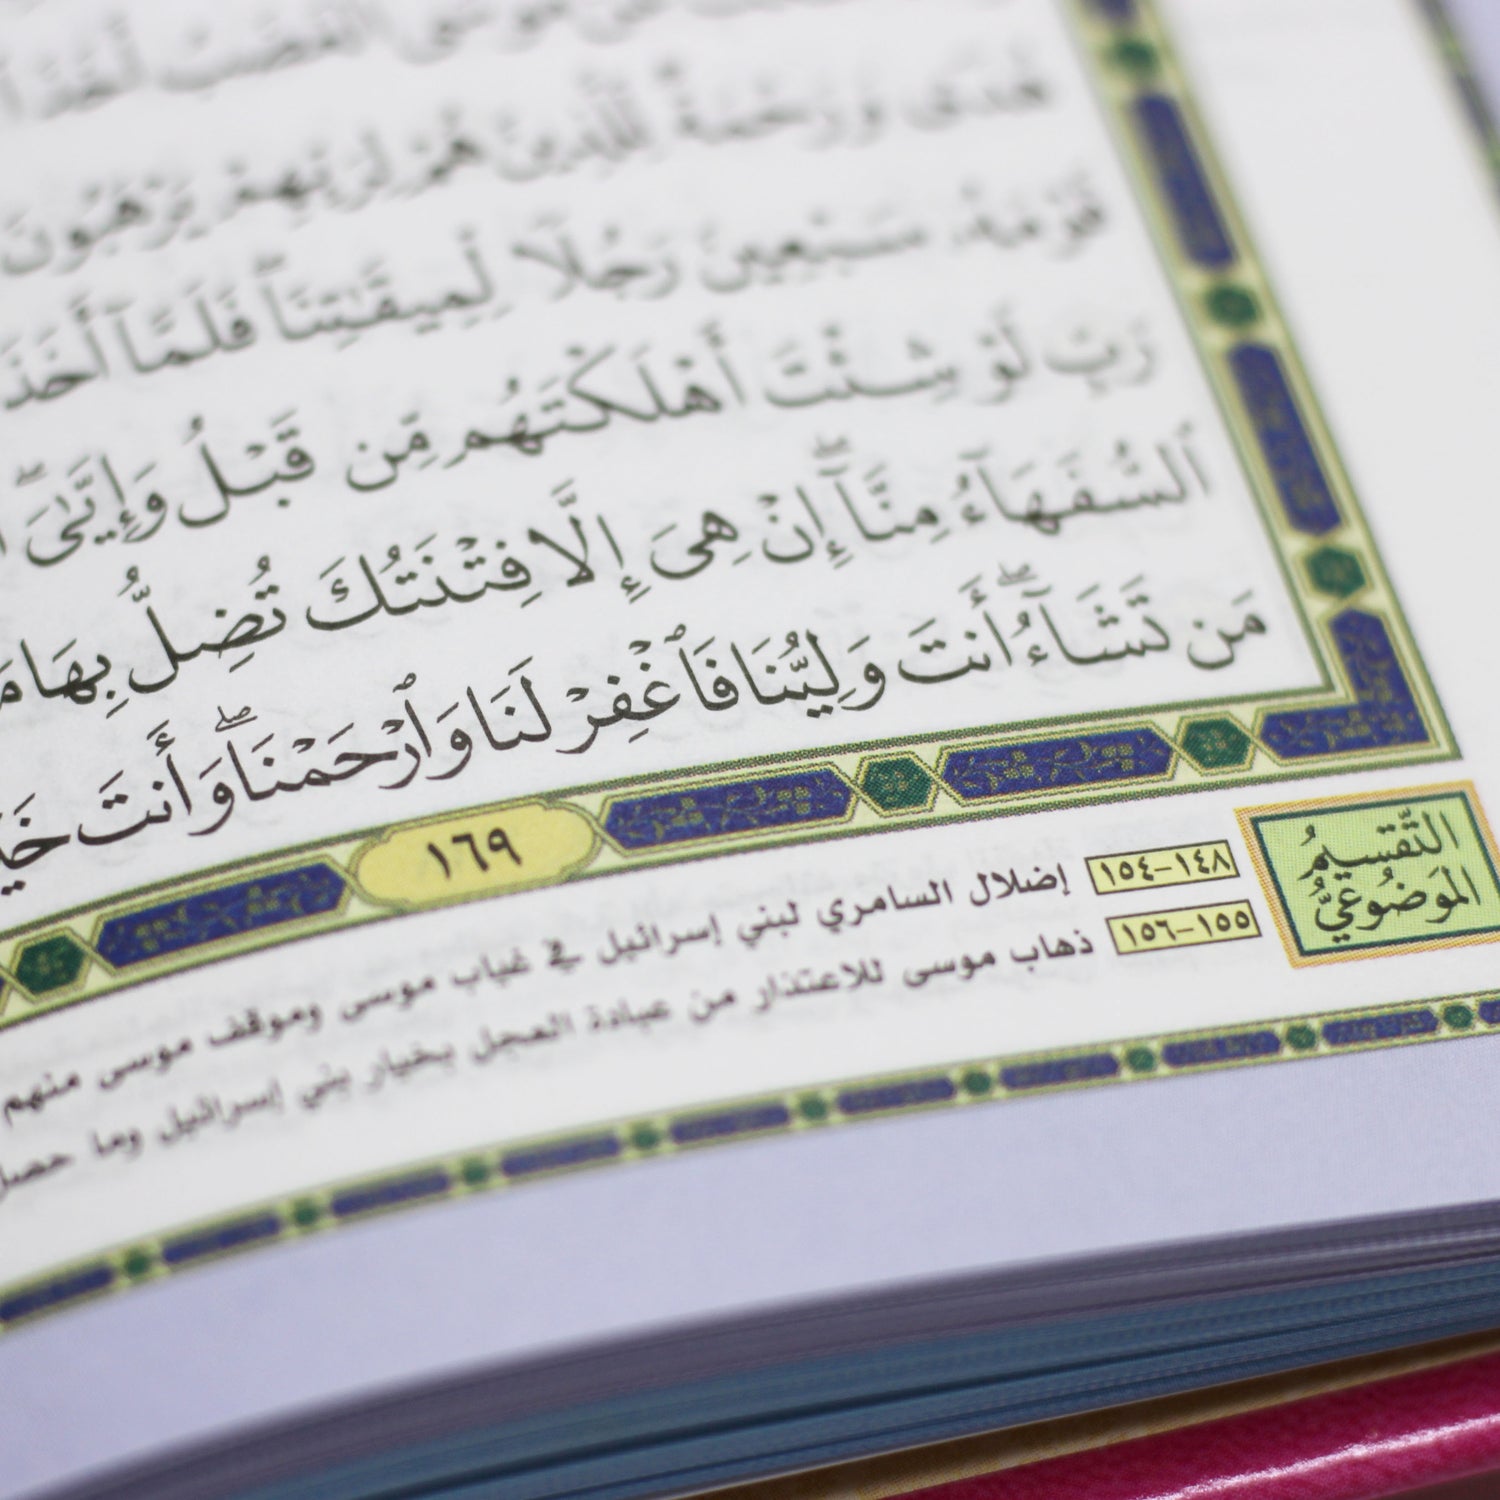 موسى الغضب أخذ
هدى ورحمة للذين هم لربهم يرهبون
قومه سبعين رجلا لميقٰتنا فلما أخذ
رَبِّ لَوْ شِئْتَ أَهْلَكْتَهُم مِّن قَبْلُ وَإِيَّٰىَ
ٱلسُّفَهَآءُ مِنَّآ إِنْ هِىَ إِلَّا فِتْنَتُكَ تُضِلُّ بِهَا
مَن تَشَآءُ أَنتَ وَلِيُّنَا فَٱغْفِرْ لَنَا وَٱرْحَمْنَا وَأَنتَ
١٦٩
التَّقسيمُ
المَوضُوعيُّ
١٤٨-١٥٤ إضلال السامري لبني إسرائيل في غياب موسى وموقف موسى منهم
١٥٥-١٥٦ ذهاب موسى للاعتذار من عبادة العجل بخيار بني إسرائيل وما حصل